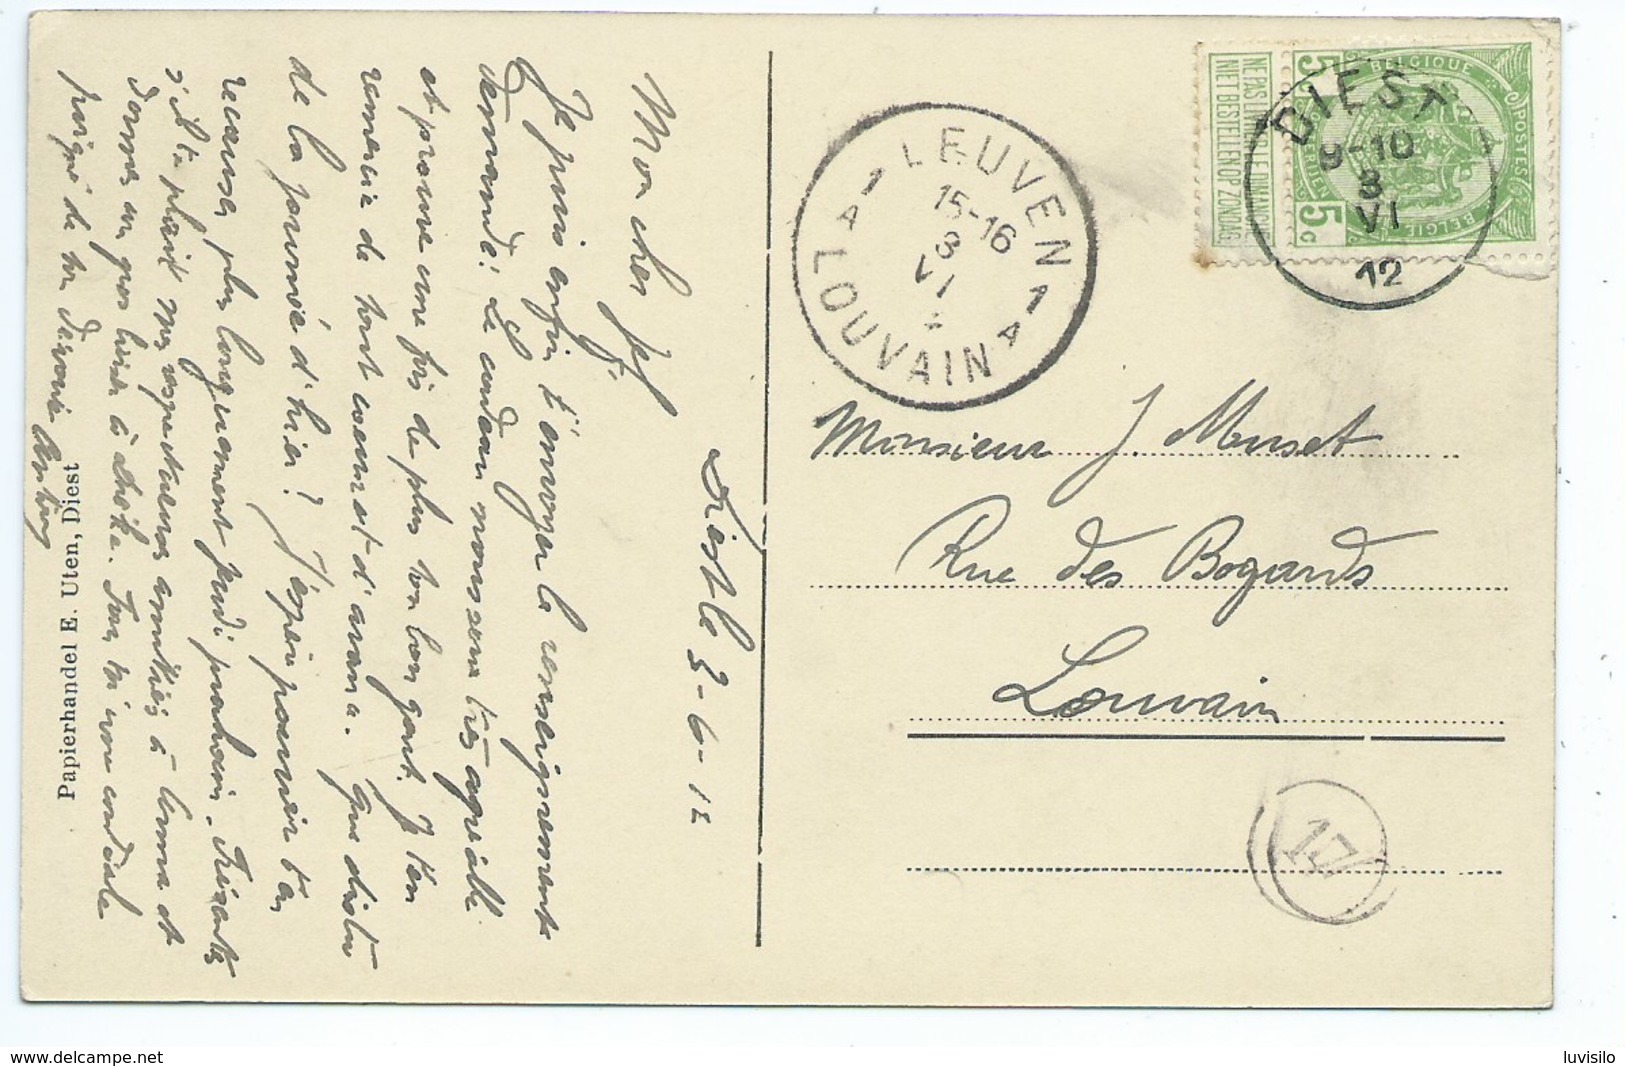 3-6-12
Mon cher Jef
Je puis enfin t'envoyer le renseignement
demandé! Le cadeau nous sera très agréable
et prouve une fois de plus ton bon goût. Je t'en
remercie de tout coeur et d'avance. Que dis-tu
de la journée d'hier? J'espère pouvoir t'en
recauser plus longuement jeudi prochain. Présente
s'il te plaît mes respectueuses amitiés à Emma et
donnes un gros bisou à
poigné de
Papierhandel E. Uten, Diest
LEUVEN
1 A 15-16 3 VI 1 A
LOUVAIN
NE PAS LIVRER LE DIMANCHE
NIET BESTELLEN OP ZONDAG
BELGIQUE
POSTES
5 5 c
BELGIE
DIEST
9-10
3
VI
12
Monsieur J. Musset
Rue des Bogards
Louvain
17
delcampe.net
luvisilo